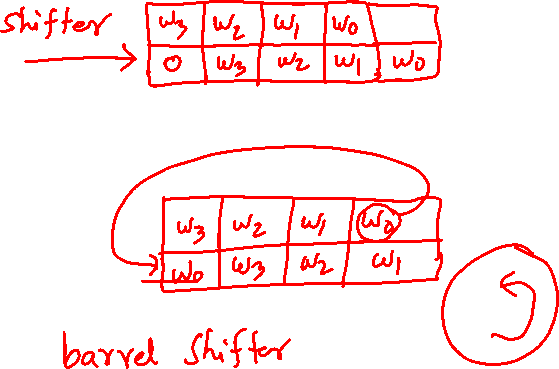 shifter
w3 w2 w1 w0
0 w3 w2 w1 w0
w3 w2 w1 w0
w0 w3 w2 w1
barrel shifter